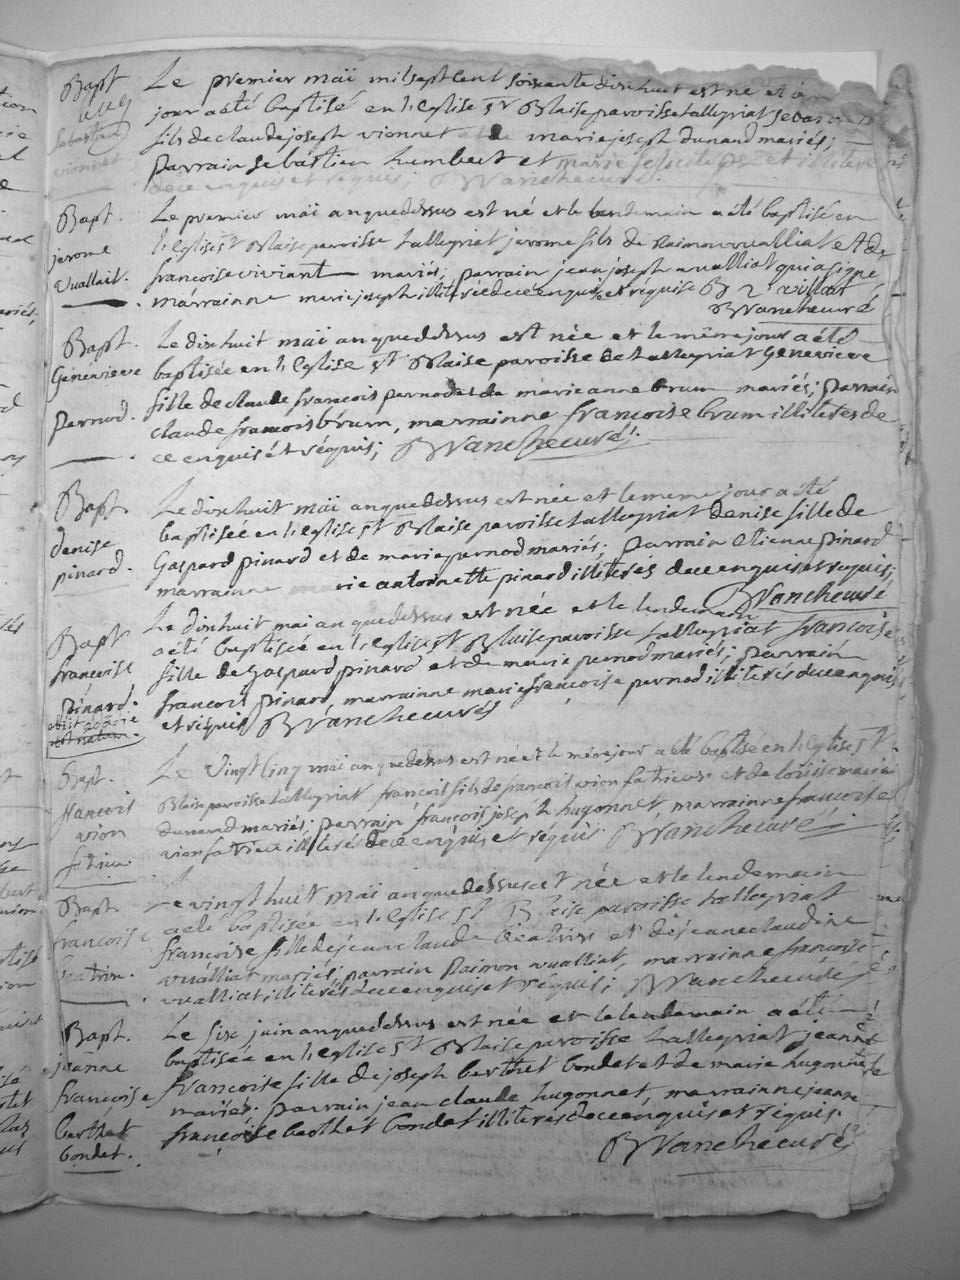 Bapt
Sebastien
vionnet
Le premier maï mil sept cent soixante dix huit est né et
jour a eté baptisé en l'eglise st Blaise paroisse tallegriat
fils de claude joseph vionnet et de marie joseph dunand mariés;
parrain sebastien humbert et marie et illiteré
de ce enquis et requis; Vancheuré
Bapt.
jerome
Vuallat.
Le premier maï an quedessus est né et le lendemain a eté baptisé en
l'eglise st Blaise paroisse tallegriat jerome fils de Raimon vualliat et de
francoise viviant mariés; parrain jean joseph vualliat qui a signé
marrainne marie joseph illiterée de ce enquise et requise
BVancheuré
Bapt.
Génevieve
pernod.
Le dix huit maï an quedessus est née et le même jour a eté
baptisée en l'eglise st Blaise paroisse de tallegriat Génevieve
fille de claude francois pernod et de marie anne brun mariés; parrain
claude francois brun, marrainne francoise brun illiterés de
ce enquis et réquis; BVancheuré.
Bapt.
denise
pinard.
Le dix huit maï an quedessus est née et le meme jour a eté
baptisée en l'eglise st Blaise paroisse tallegriat denise fille de
Gaspard pinard et de marie pernod mariés; parrain Etienne pinard
marrainne marie antoinette pinard illiterés de ce enquis et requis;
BVancheuré
Bapt
francoise
pinard.
Le dix huit mai an quedessus est née et le lendemain
a eté baptisée en l'eglise st Blaise paroisse tallegriat francoise
fille de Gaspard pinard et de marie pernod mariés; parrain
francois pinard, marrainne marie francoise pernod illiterés de ce enquis
et réquis BVancheuré
Bapt.
francois
vion
Le vingt cinq mai an quedessus est né et le même jour a eté baptisé en l'eglise st
Blaise paroisse tallegriat francois fils de francois vion fatieur et de louise marie
dunand mariés; parrain francois joseph hugonnet, marrainne francoise
vion fatieur illiterés de ce enquis et réquis BVancheuré
Bapt
francoise
Le vingt huit maï an quedessus est née et le lendemain
a eté baptisée en l'eglise st Blaise paroisse tallegriat
francoise fille de jean claude et de jeane claudine
vualliat mariés; parrain Raimon vualliat, marrainne francoise
vualliat illiterés de ce enquis et réquis; BVancheuré
Bapt.
jeanne
francoise
berthet
bondet.
Le six juin an quedessus est née et le lendemain a eté
baptisée en l'eglise st Blaise paroisse tallegriat jeanne
francoise fille de joseph berthet bondet et de marie hugonnet
mariés; parrain jean claude hugonnet, marrainne jeanne
francoise berthet bondet illiterés de ce enquis et réquis.
BVancheuré